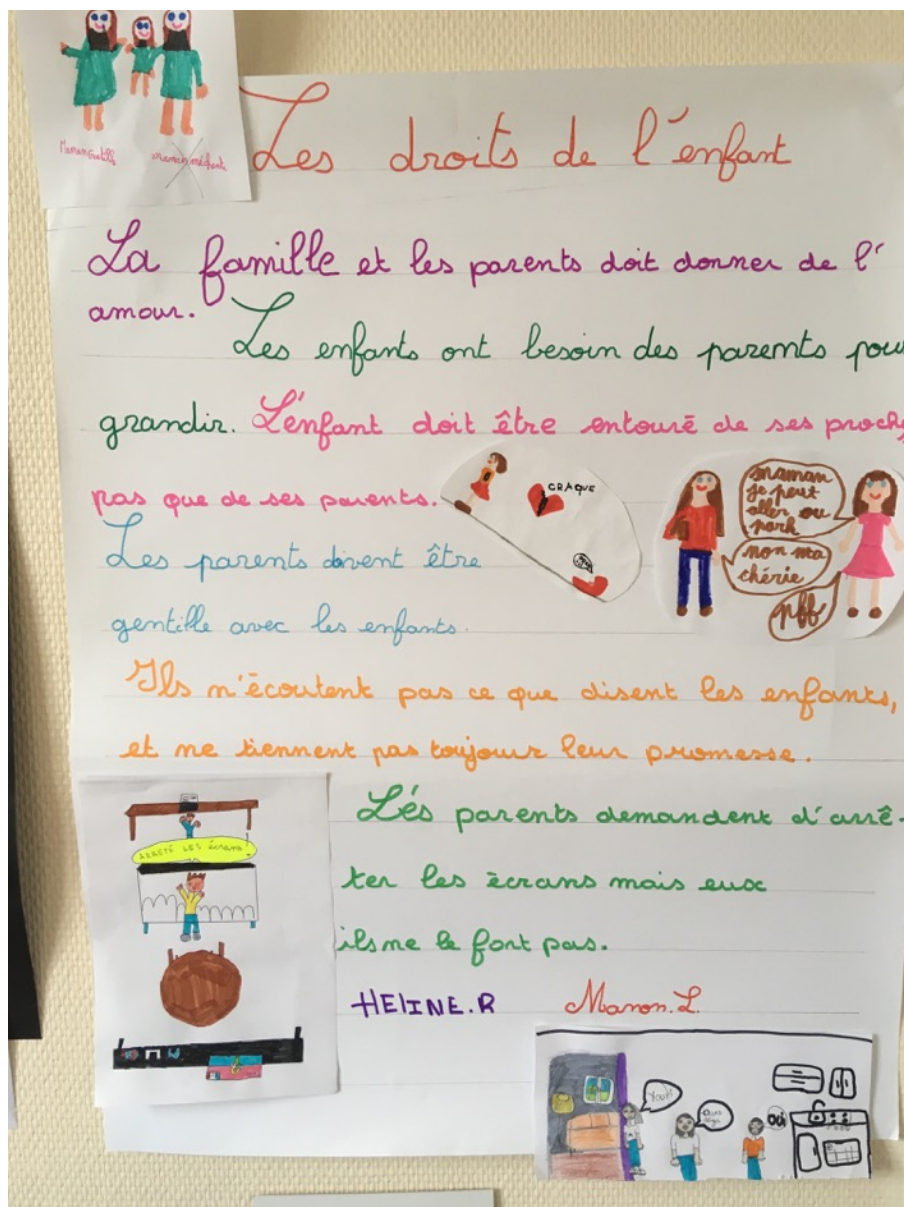 Maman Gentille maman méchante
Les droits de l'enfant
La famille et les parents doit donner de l'
amour.
Les enfants ont besoin des parents pour
grandir. L'enfant doit être entouré de ses proch
pas que de ses parents.
CRAQUE
maman
je peut
aller ou
park
non ma
chérie
pff
Les parents doivent être
gentille avec les enfants.
Ils n'écoutent pas ce que disent les enfants,
et ne tiennent pas toujour leur promesse.
ARRETÉ LES écrans!
Lés parents demandent d'arrê-
ter les écrans mais eux
ils ne le font pas.
HELINE.R Manon.L.
Youhi
oui